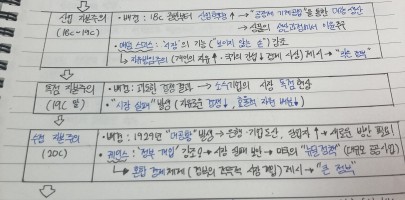 산업 자본주의
(18C~19C)
• 배경 : 18C 중반부터 산업혁명↑ → "공장제 기계공업"을 통한 대량 생산
→ 상품의 생산과정에서 이윤추구
• 애덤 스미스 : '시장'의 기능 ("보이지 않는 손") 강조
↳ 자유방임주의 (개인의 자유↑ · 국가의 간섭↓ 경제 사상) 제시 → "작은 정부"
독점 자본주의
(19C 말)
• 배경 : 과도한 경쟁 결과 → 소수기업의 시장 독점 현상
• "시장 실패" 발생 (자유로운 경쟁↓, 효율적 자원 배분↓)
수정 자본주의
(20C)
• 배경 : 1929년 "대공황" 발생 → 은행·기업 도산, 실업자↑ → 새로운 방안 필요!
• 케인스 : '정부 개입' 강조 → 시장 실패 보완 → 미국의 "뉴딜 정책" (대규모 공공사업)
↳ 혼합 경제 체제 (정부의 시장 개입) 제시 → "큰 정부"